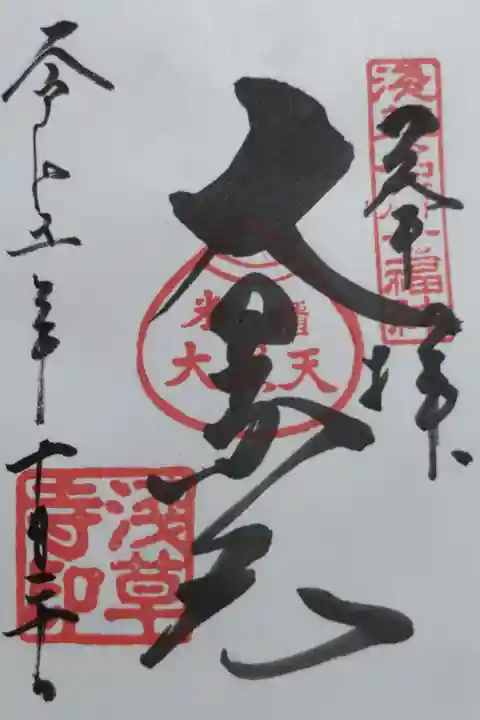 奉拝
浅草名所七福神
大黒天
米櫃
大黒天
令和五年十月二十日
浅草寺印